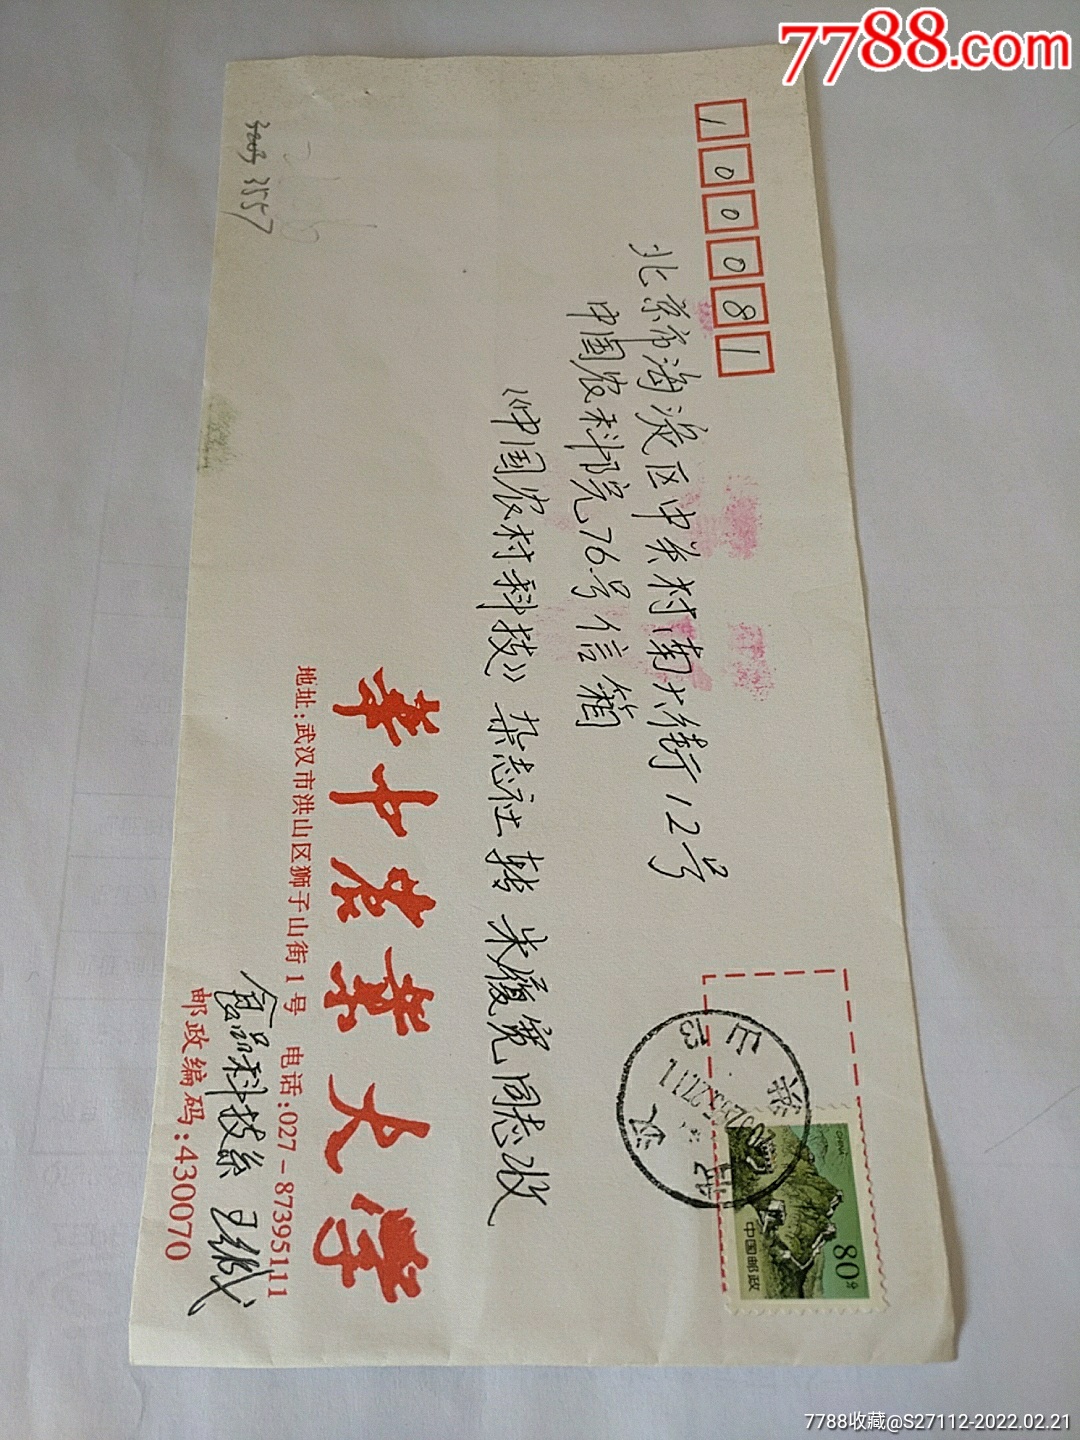 7788.com
100081
北京市海淀区中关村南大街12号
中国农科院76号信箱
《中国农村科技》杂志社转 朱履宽同志收
3557
80分
中国邮政
CHINA
武汉
华中农业大学
地址:武汉市洪山区狮子山街1号 电话:027-87395111
食品科技系 王
邮政编码:430070
7788收藏@S27112-2022.02.21